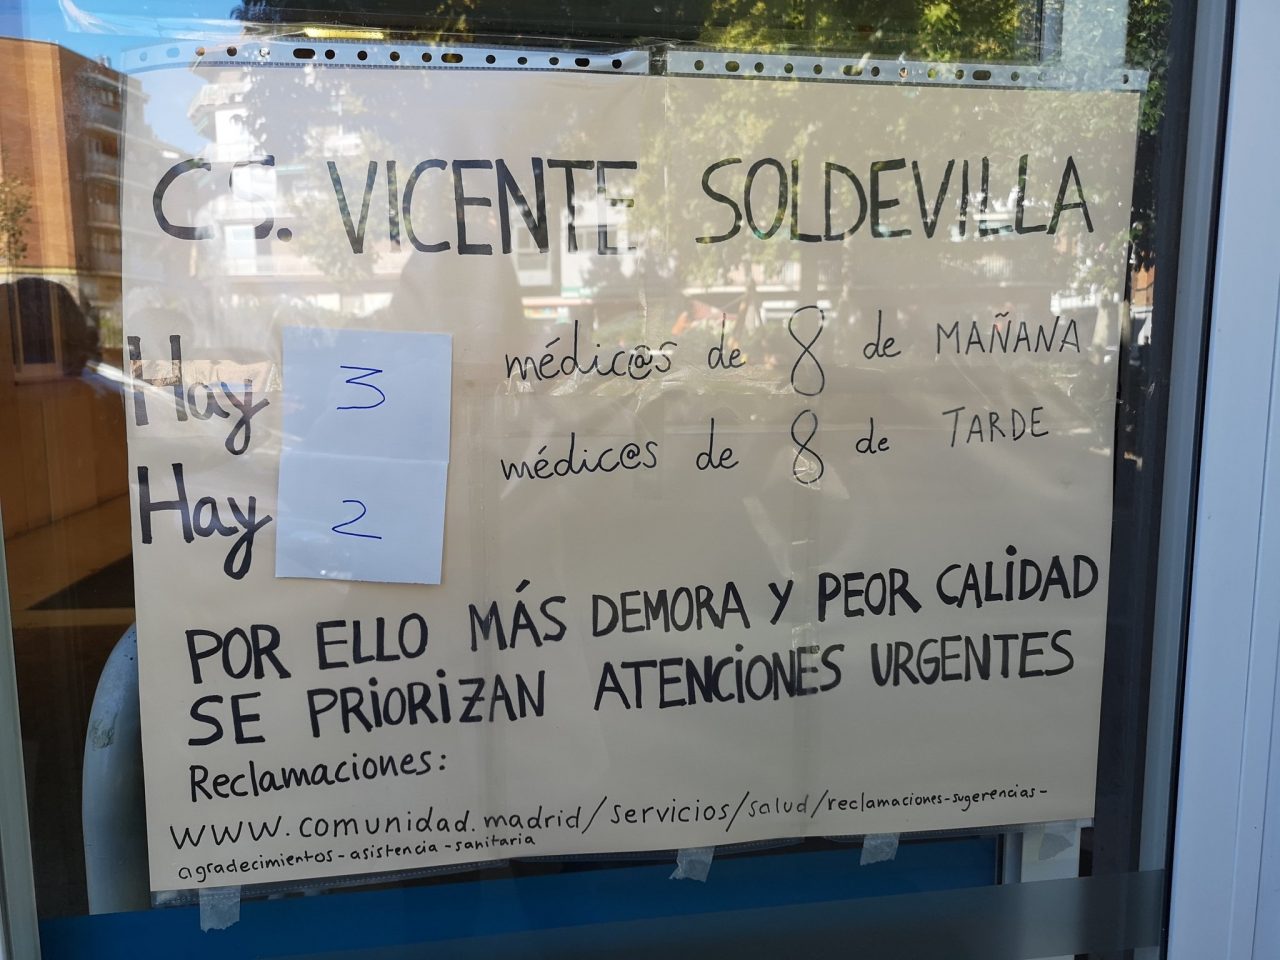 CS. VICENTE SOLDEVILLA
Hay 3 médic@s de 8 de MAÑANA
Hay 2 médic@s de 8 de TARDE
POR ELLO MÁS DEMORA Y PEOR CALIDAD
SE PRIORIZAN ATENCIONES URGENTES
Reclamaciones:
www.comunidad.madrid/servicios/salud/reclamaciones-sugerencias-
agradecimientos-asistencia-sanitaria